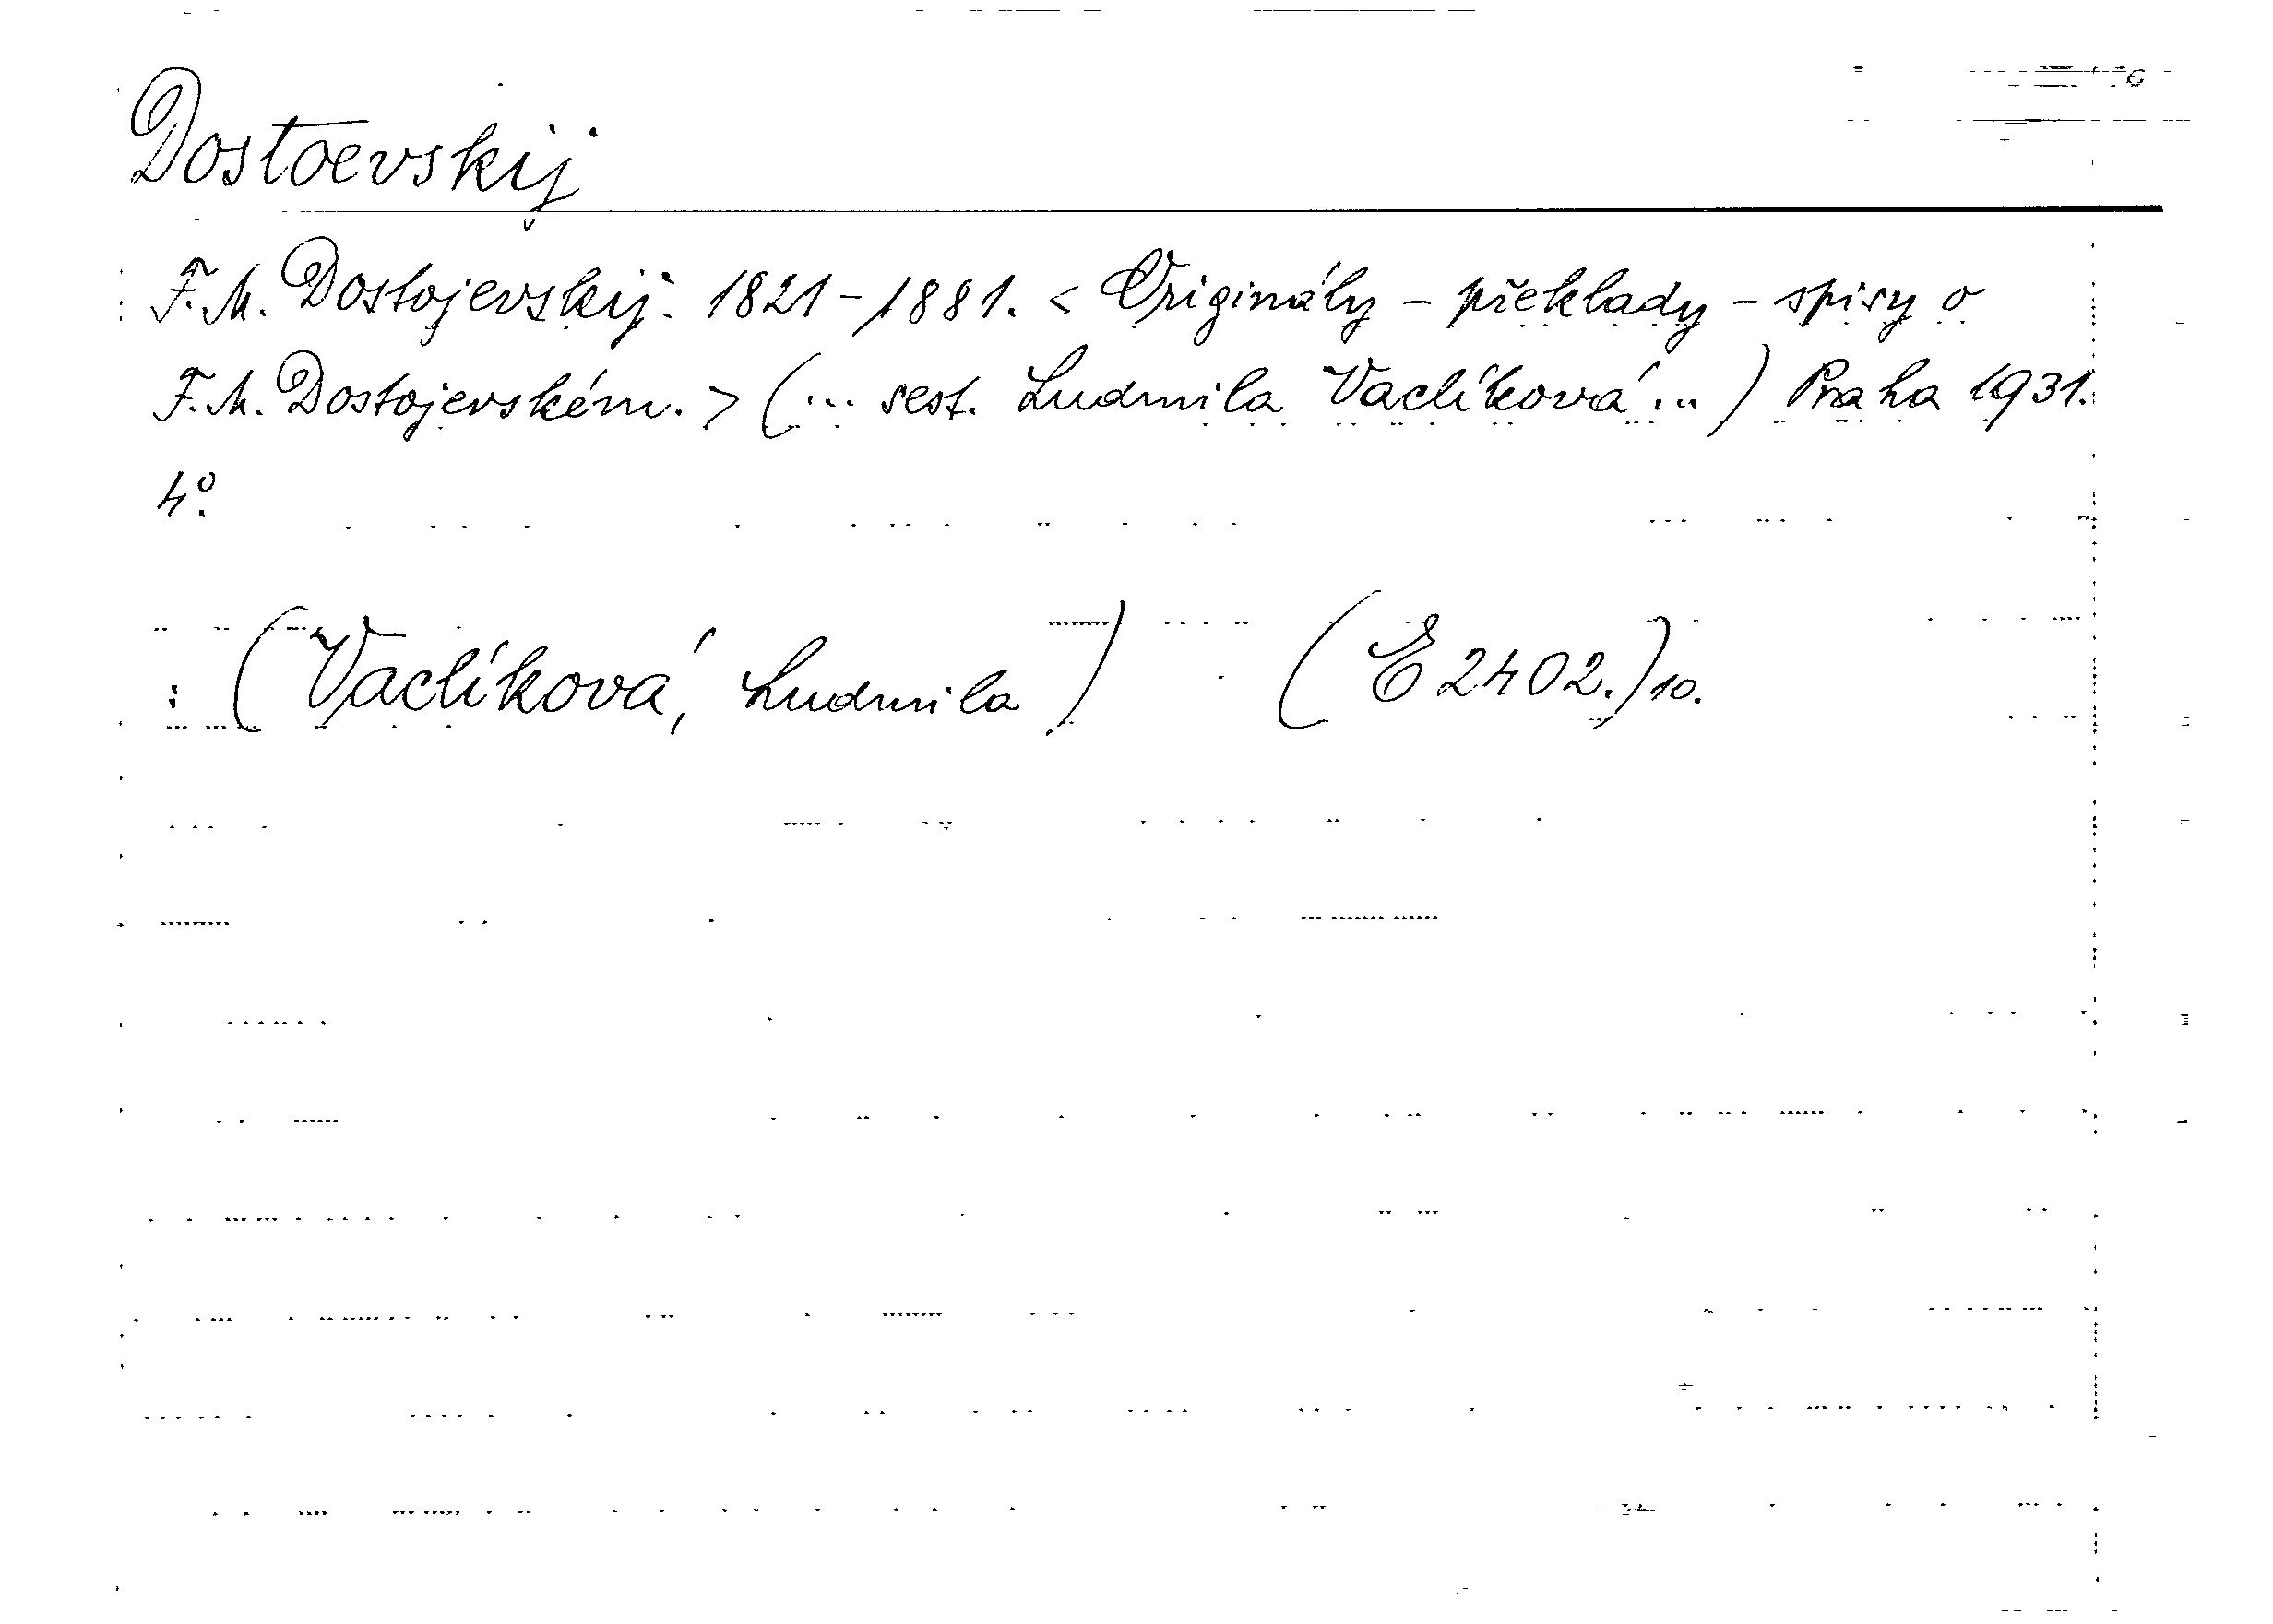 Dostoevskij
F. M. Dostojevskij. 1821-1881. < Originály - překlady - spisy o
F. M. Dostojevském. > (... sest. Ludmila Vaclíková ...) Praha 1931.
4°.
: (Vaclíková, Ludmila) (E 2402.) 10.